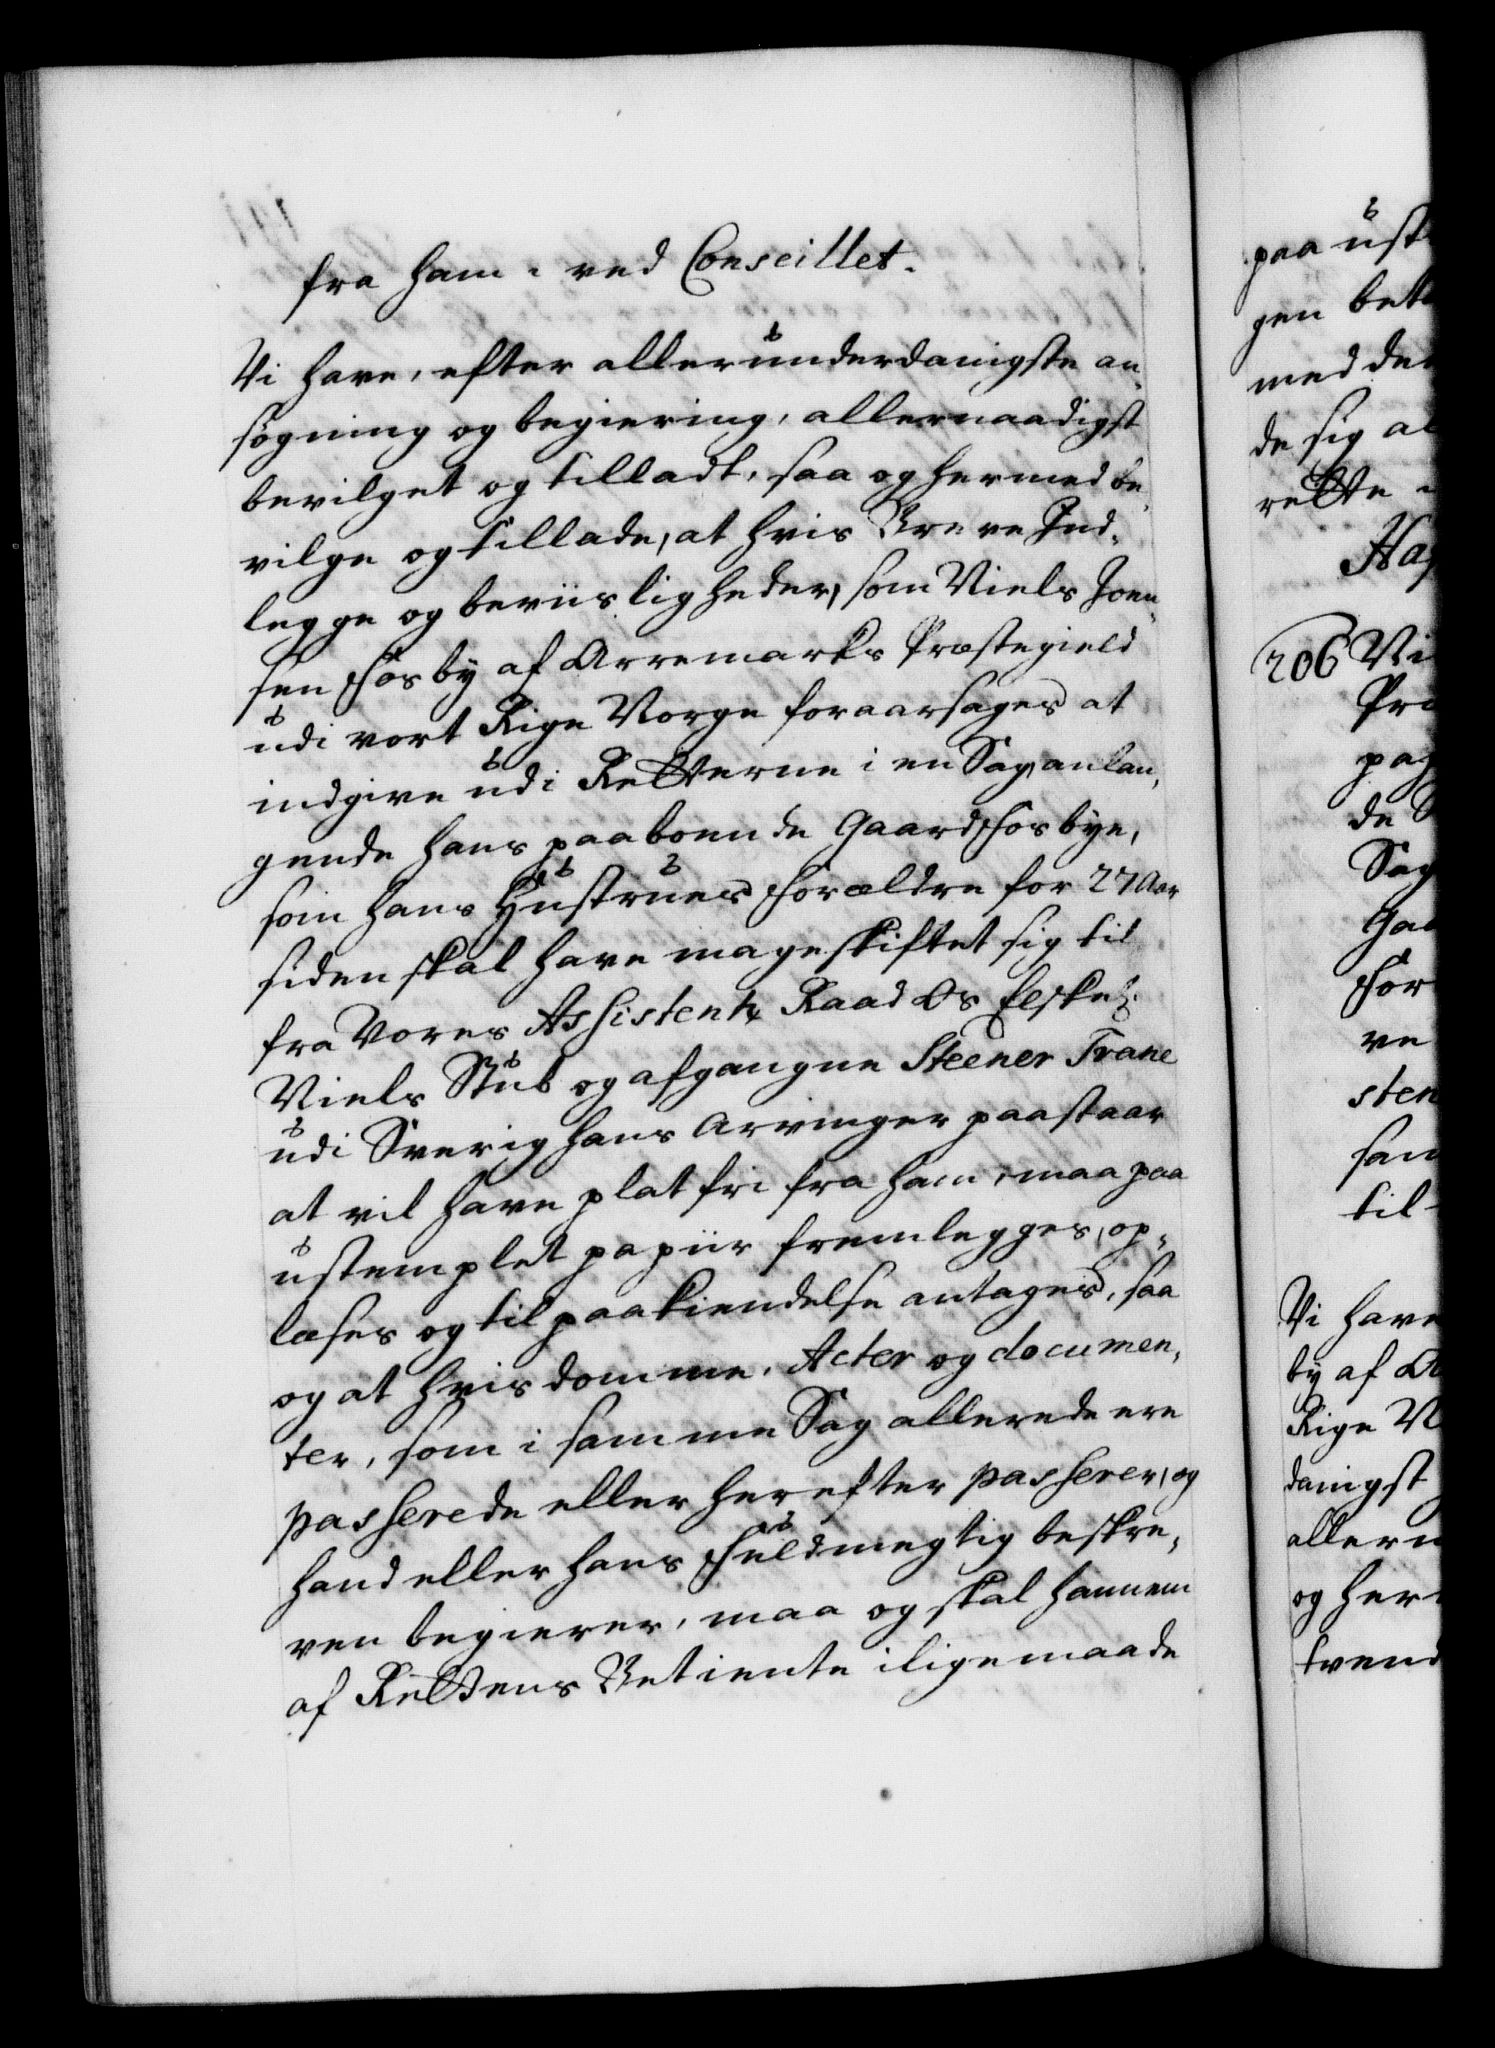 fra ham. ved Conseillet.
Vi have, efter allerunderdanigste an„
søgning og begiering, allernaadigst
bevilget og tilladt, saa og hermed be„
vilge og tillade, at hvis Breve Ind„
legge og beviisligheder, som Niels Joen„
sen Fosby af Arremarks Præstegield
udi vort Rige Norge foraarsages at
indgive udi Retterne i en Sag anlan„
gende hans paaboende Gaard Fosbye,
som hans Hustrues Forældre for 27 Aar
siden skal have mageskiftet sig til
fra Vores Assistentz Raad Os Elskel:
Niels Stub og afgangne Steener Trane
udi Sverig hans Arvinger paastaar
at vil have plat fri fra ham, maa paa
ustemplet papiir fremlegges, op„
læses og til paakiendelse antages, saa
og at hvis domme, Acter og documen„
ter, som i samme Sag allerede ere
passerede eller herefter passerer, og
hand eller hans Fuldmegtig beskre„
ven begierer, maa og skal hannem
af Rettens Betiente i ligemaade
paa ust
gen bett
med de
de sig al
rette
206 Vi
Pr
pa
de S
Sag
Ga
For
ve
sten
sam
til
Vi have
by af A
Rige N
danigst
allern
og her
tvend